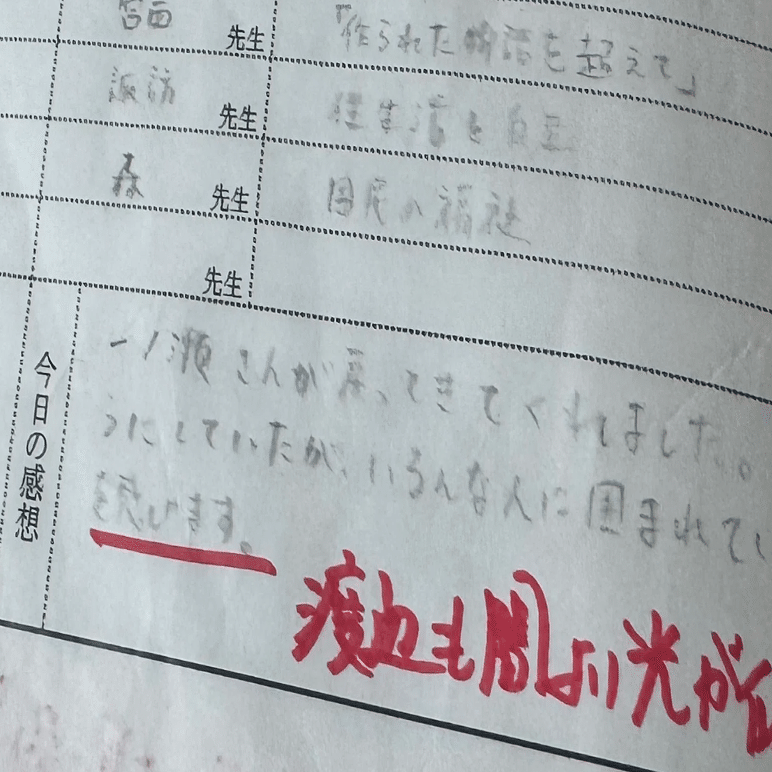 宮西 先生 「作られた物語を超えて」
諏訪 先生
森 先生 国民の福祉
先生
今日の感想
一ノ瀬さんが戻ってきてくれました。
うにしていたが、いろんな人に囲まれてい
を思います。
渡辺も闇より光が